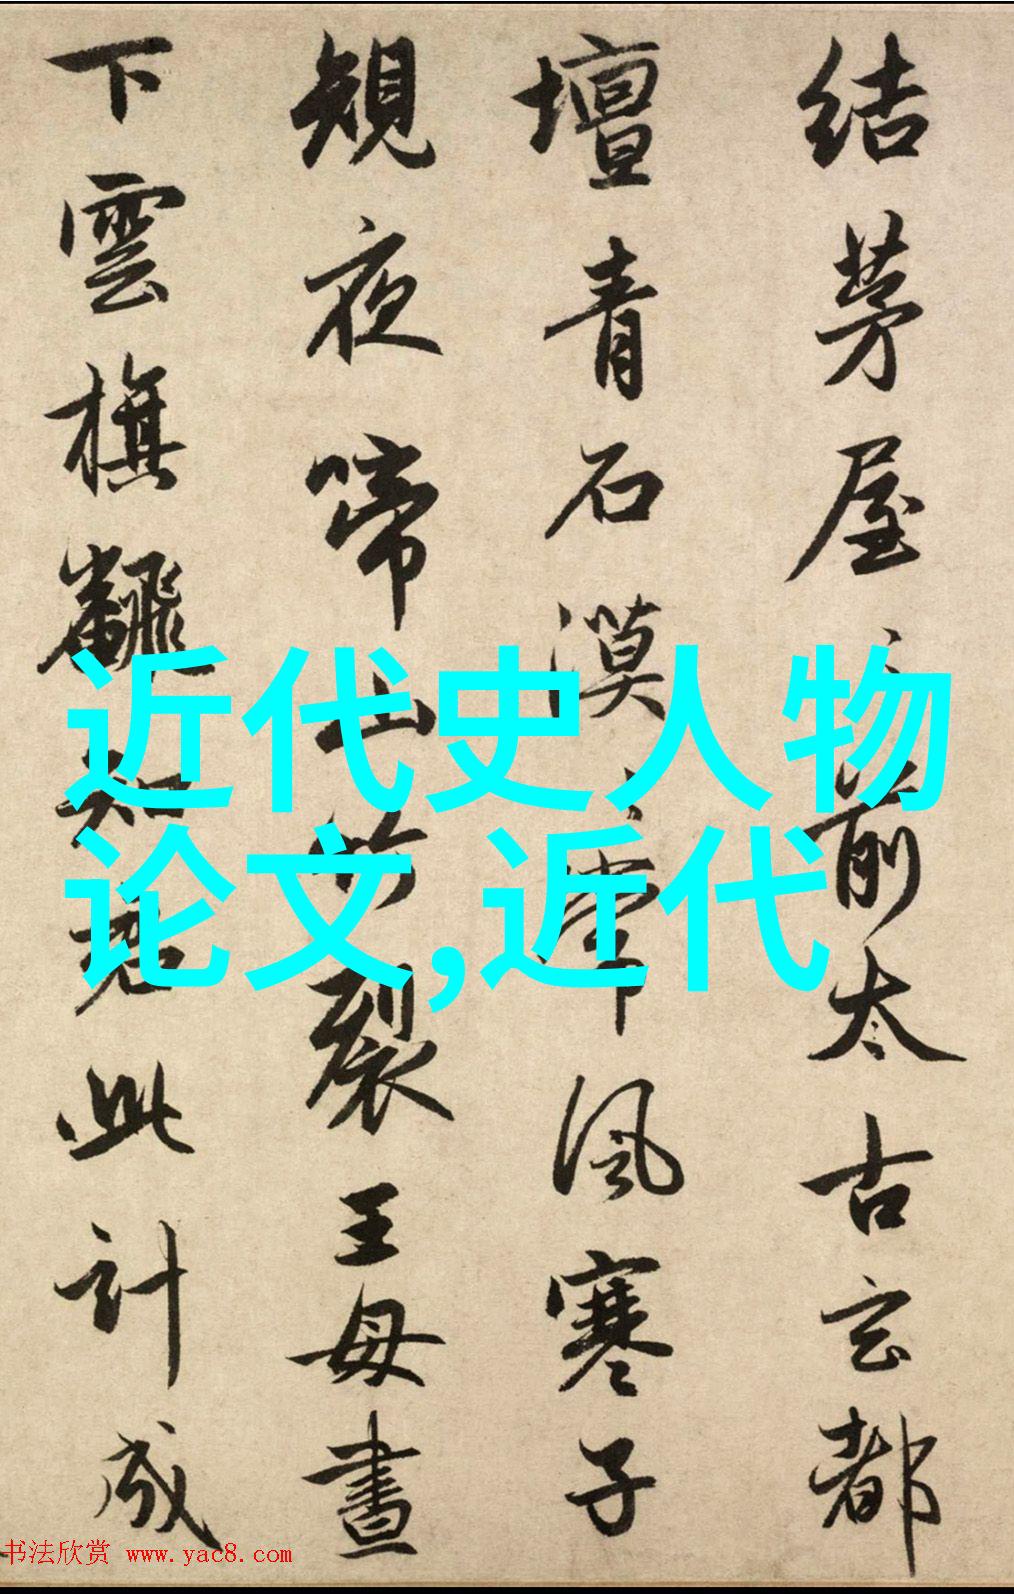 結茅屋〻前太古玄都
壇青石漠〻常風寒子
規夜啼山竹裂王母晝
下雲旗飜知君此計成
近代史人物
论文,近代
书法欣赏 www.yac8.com